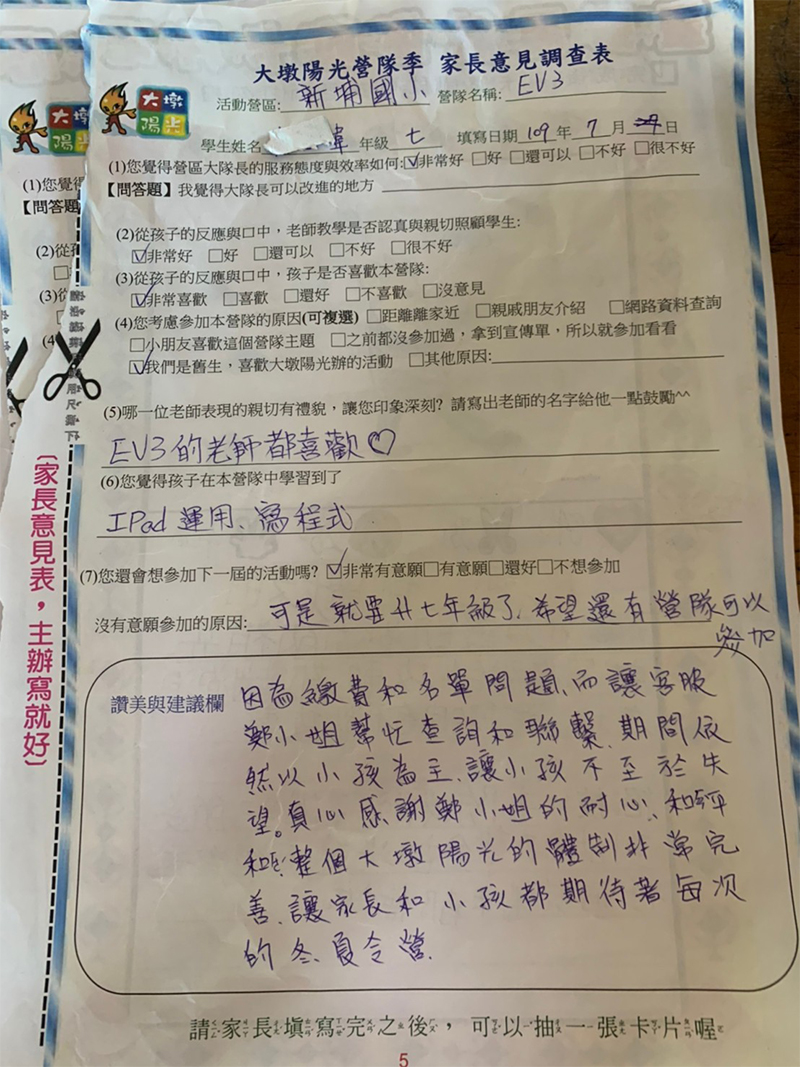 大墩陽光營隊季 家長意見調查表
大墩
陽光
活動營區: 新埔國小 營隊名稱: EV3
學生姓名 年級 七 填寫日期 109 年 7 月 日
(1)您覺得營區大隊長的服務態度與效率如何:☑非常好 □好 □還可以 □不好 □很不好
【問答題】我覺得大隊長可以改進的地方
(2)從孩子的反應與口中，老師教學是否認真與親切照顧學生:
☑非常好 □好 □還可以 □不好 □很不好
(3)從孩子的反應與口中，孩子是否喜歡本營隊:
☑非常喜歡 □喜歡 □還好 □不喜歡 □沒意見
(4)您考慮參加本營隊的原因(可複選) □距離離家近 □親戚朋友介紹 □網路資料查詢
□小朋友喜歡這個營隊主題 □之前都沒參加過，拿到宣傳單，所以就參加看看
☑我們是舊生，喜歡大墩陽光辦的活動 □其他原因:
(5)哪一位老師表現的親切有禮貌，讓您印象深刻? 請寫出老師的名字給他一點鼓勵^^
EV3的老師都喜歡♡
(6)您覺得孩子在本營隊中學習到了
IPad 運用、寫程式
(7)您還會想參加下一屆的活動嗎? ☑非常有意願□有意願□還好□不想參加
沒有意願參加的原因: 可是就要升七年級了、希望還有營隊可以
參加
讚美與建議欄
因為繳費和名單問題、而讓客服
鄭小姐幫忙查詢和聯繫、期間依
然以小孩為主、讓小孩不至於失
望。真心感謝鄭小姐的耐心、和
整個大墩陽光的體制非常完
善、讓家長和小孩都期待著每次
的冬、夏令營.
請家長填寫完之後，可以抽一張卡片喔
5
〔家長意見表，主辦寫就好〕
大墩
陽光
(1)您覺
【問答題
(2)從孩
(3)從
(4